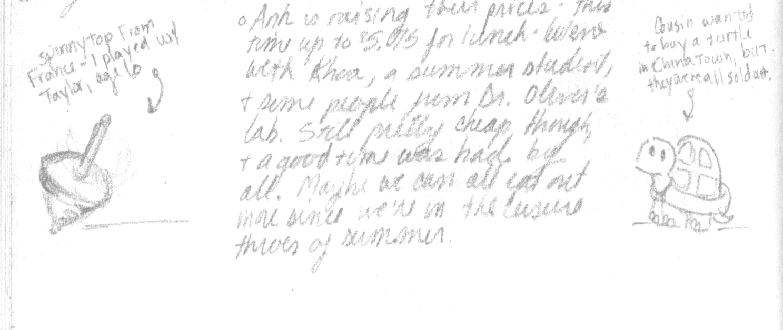 spinny top from
France - I played w/
Taylor, age 6
o Anh is raising their prices - this
time up to $5.075 for lunch -
with Khoa, a summer student,
+ some people from Dr. Oliver's
lab. Still pretty cheap, though,
+ a good time was had by
all. Maybe we can all eat out
more since we're in the leisure
throes of summer.
Cousin wanted
to buy a turtle
in ChinaTown, but
they were all sold out.